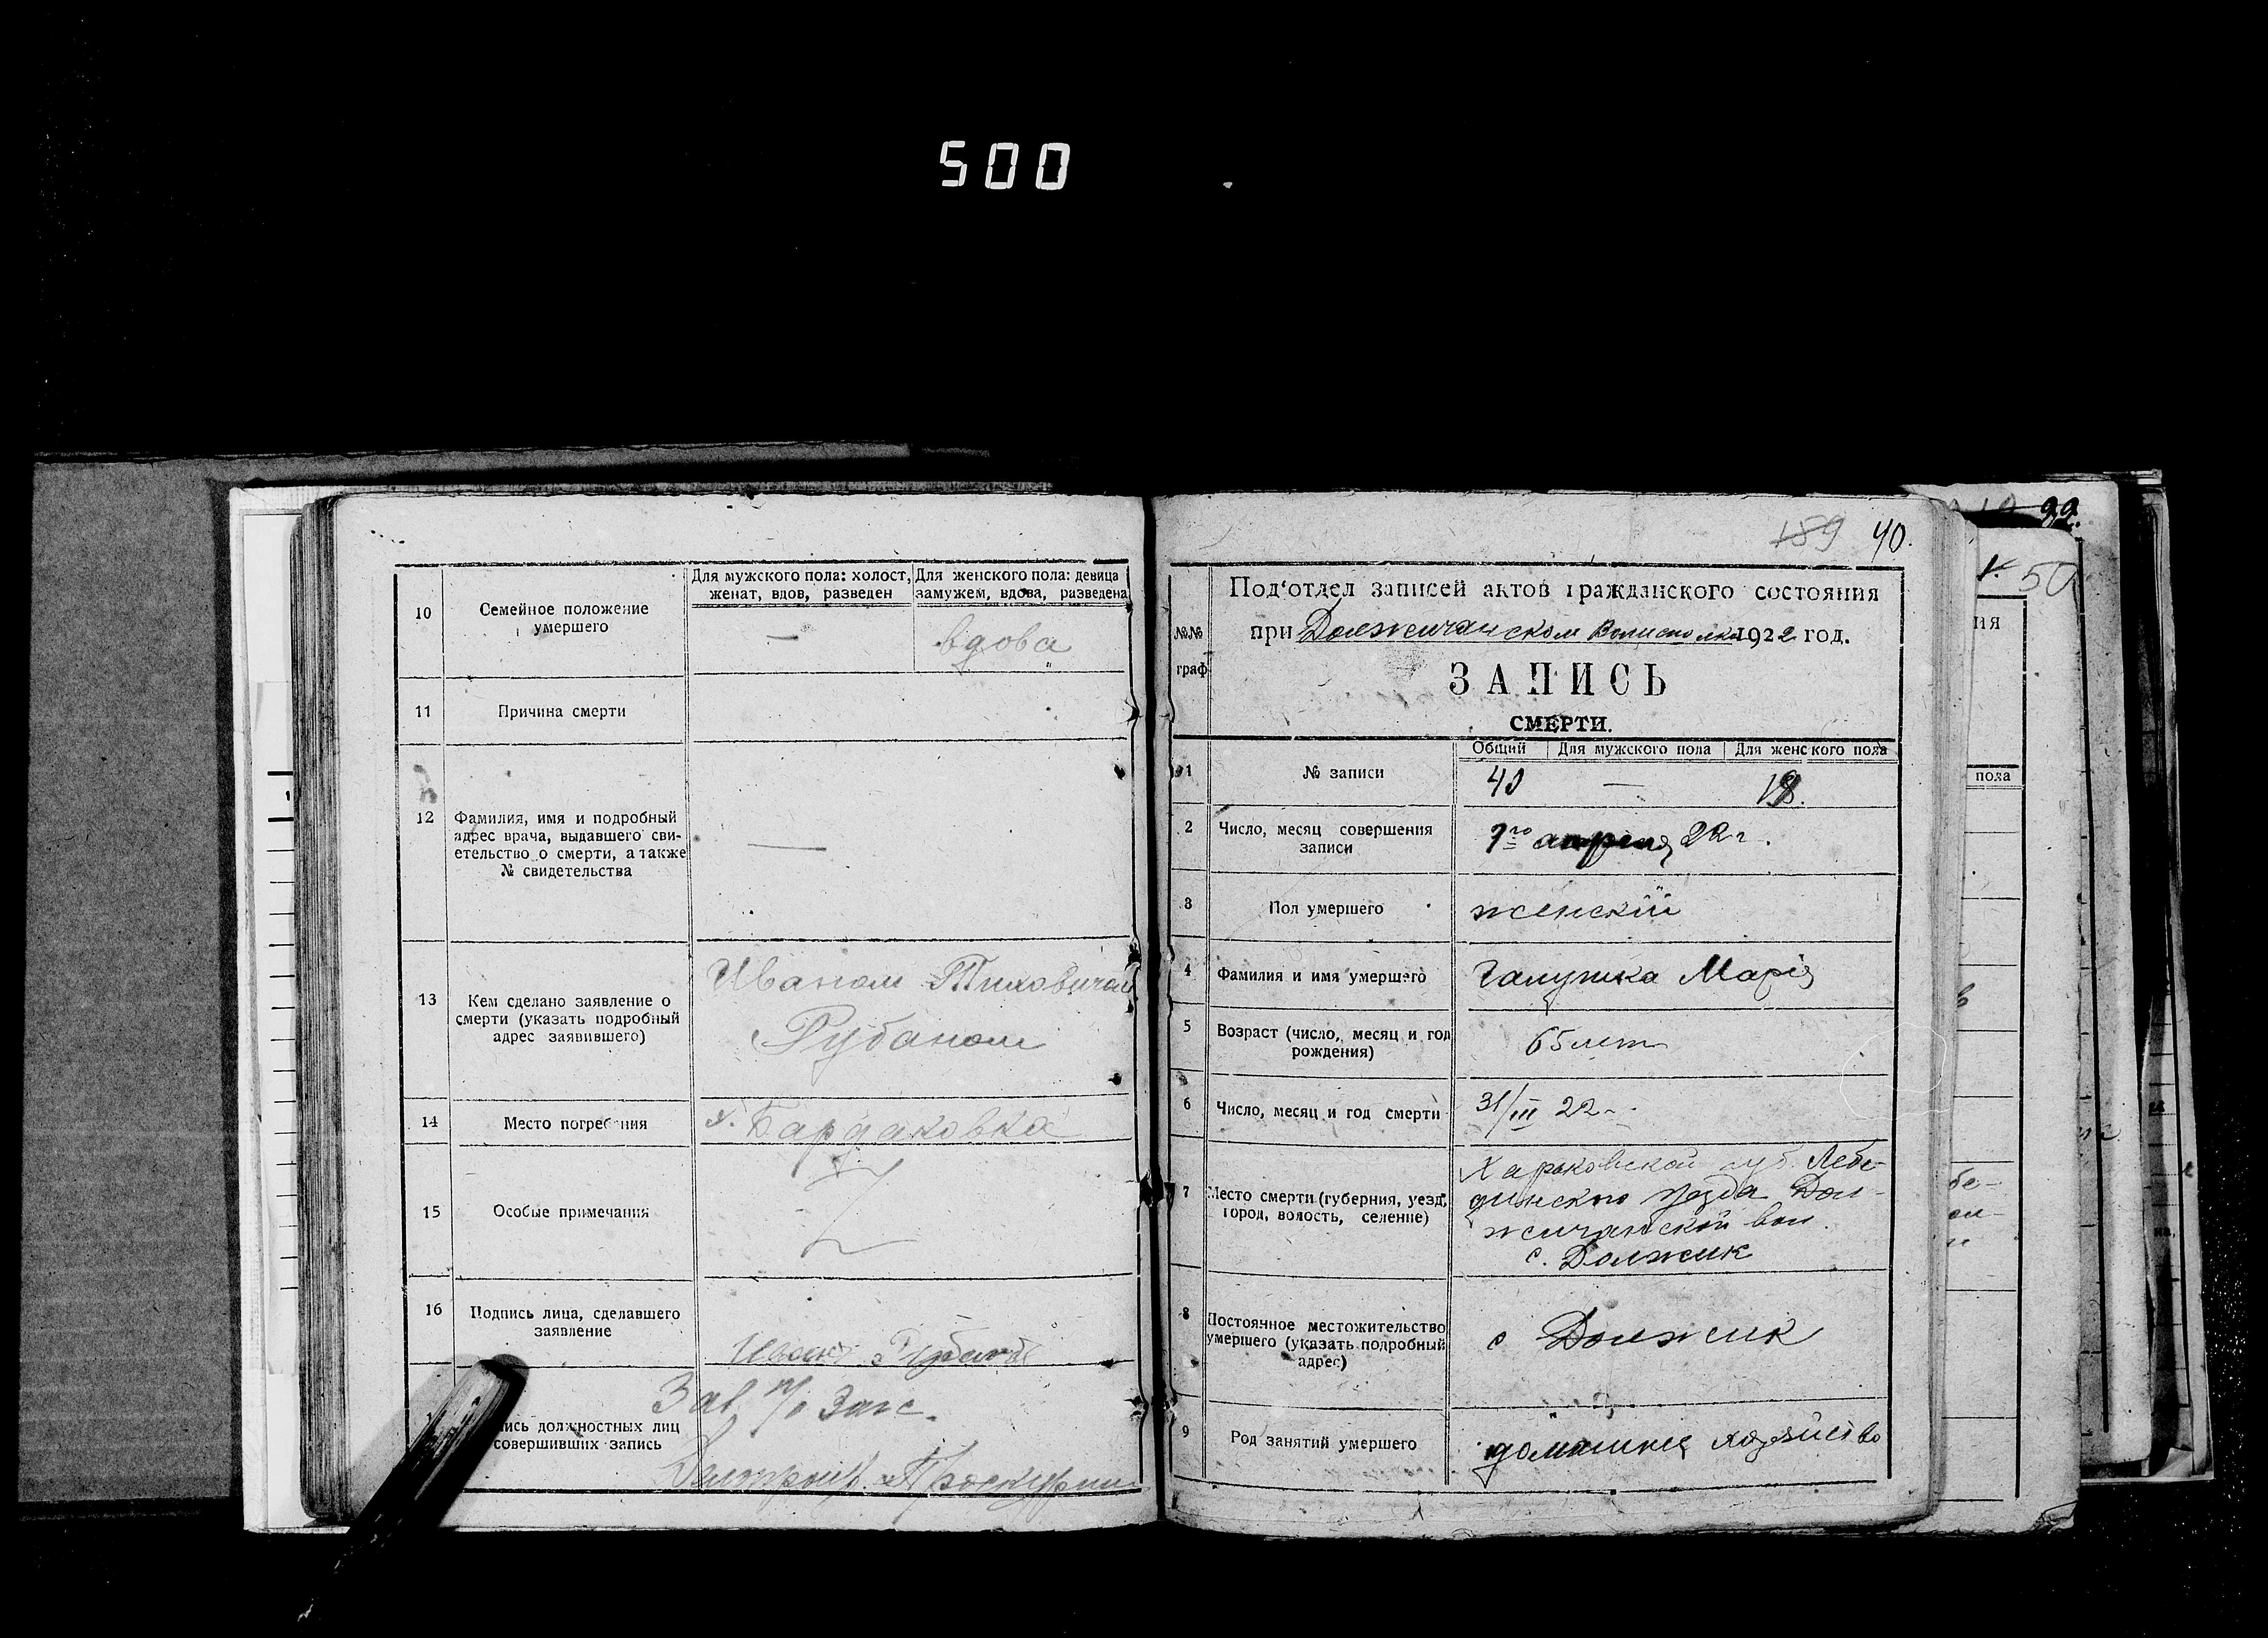 500
10
Семейное положение
умершего
Для мужского пола: холост,
женат, вдов, разведен
Для женского пола: девица
замужем, вдова, разведена
—
вдова
11
Причина смерти
12
Фамилия, имя и подробный
адрес врача, выдавшего сви-
етельство о смерти, а также
№ свидетельства
—
13
Кем сделано заявление о
смерти (указать подробный
адрес заявившего)
Иваном
Рубаном
14
Место погребения
х. Бардаковка
15
Особые примечания
16
Подпись лица, сделавшего
заявление
Иван Рубан
пись должностных лиц
совершивших запись
Зав. п/о Загс.
159 40.
№№
граф
Под'отдел записей актов гражданского состояния
при Должичанском 1922 год.
ЗАПИСЬ
СМЕРТИ.
Общий Для мужского пола Для женского пола
1
№ записи
40 —
2
Число, месяц совершения
записи
апреля 22 г.
3
Пол умершего
женскій
4
Фамилия и имя умершего
Галушка Марія
5
Возраст (число, месяц и год
рождения)
65 лет
6
Число, месяц и год смерти
31/III 22
7
Место смерти (губерния, уезд,
город, волость, селение)
Харьковской губ. Лебе-
динского уезда Дол-
жичанской вол.
с. Должик
8
Постоянное местожительство
умершего (указать подробный
адрес)
с Должик
9
Род занятий умершего
домашнея хозяйство
50
ия
пола